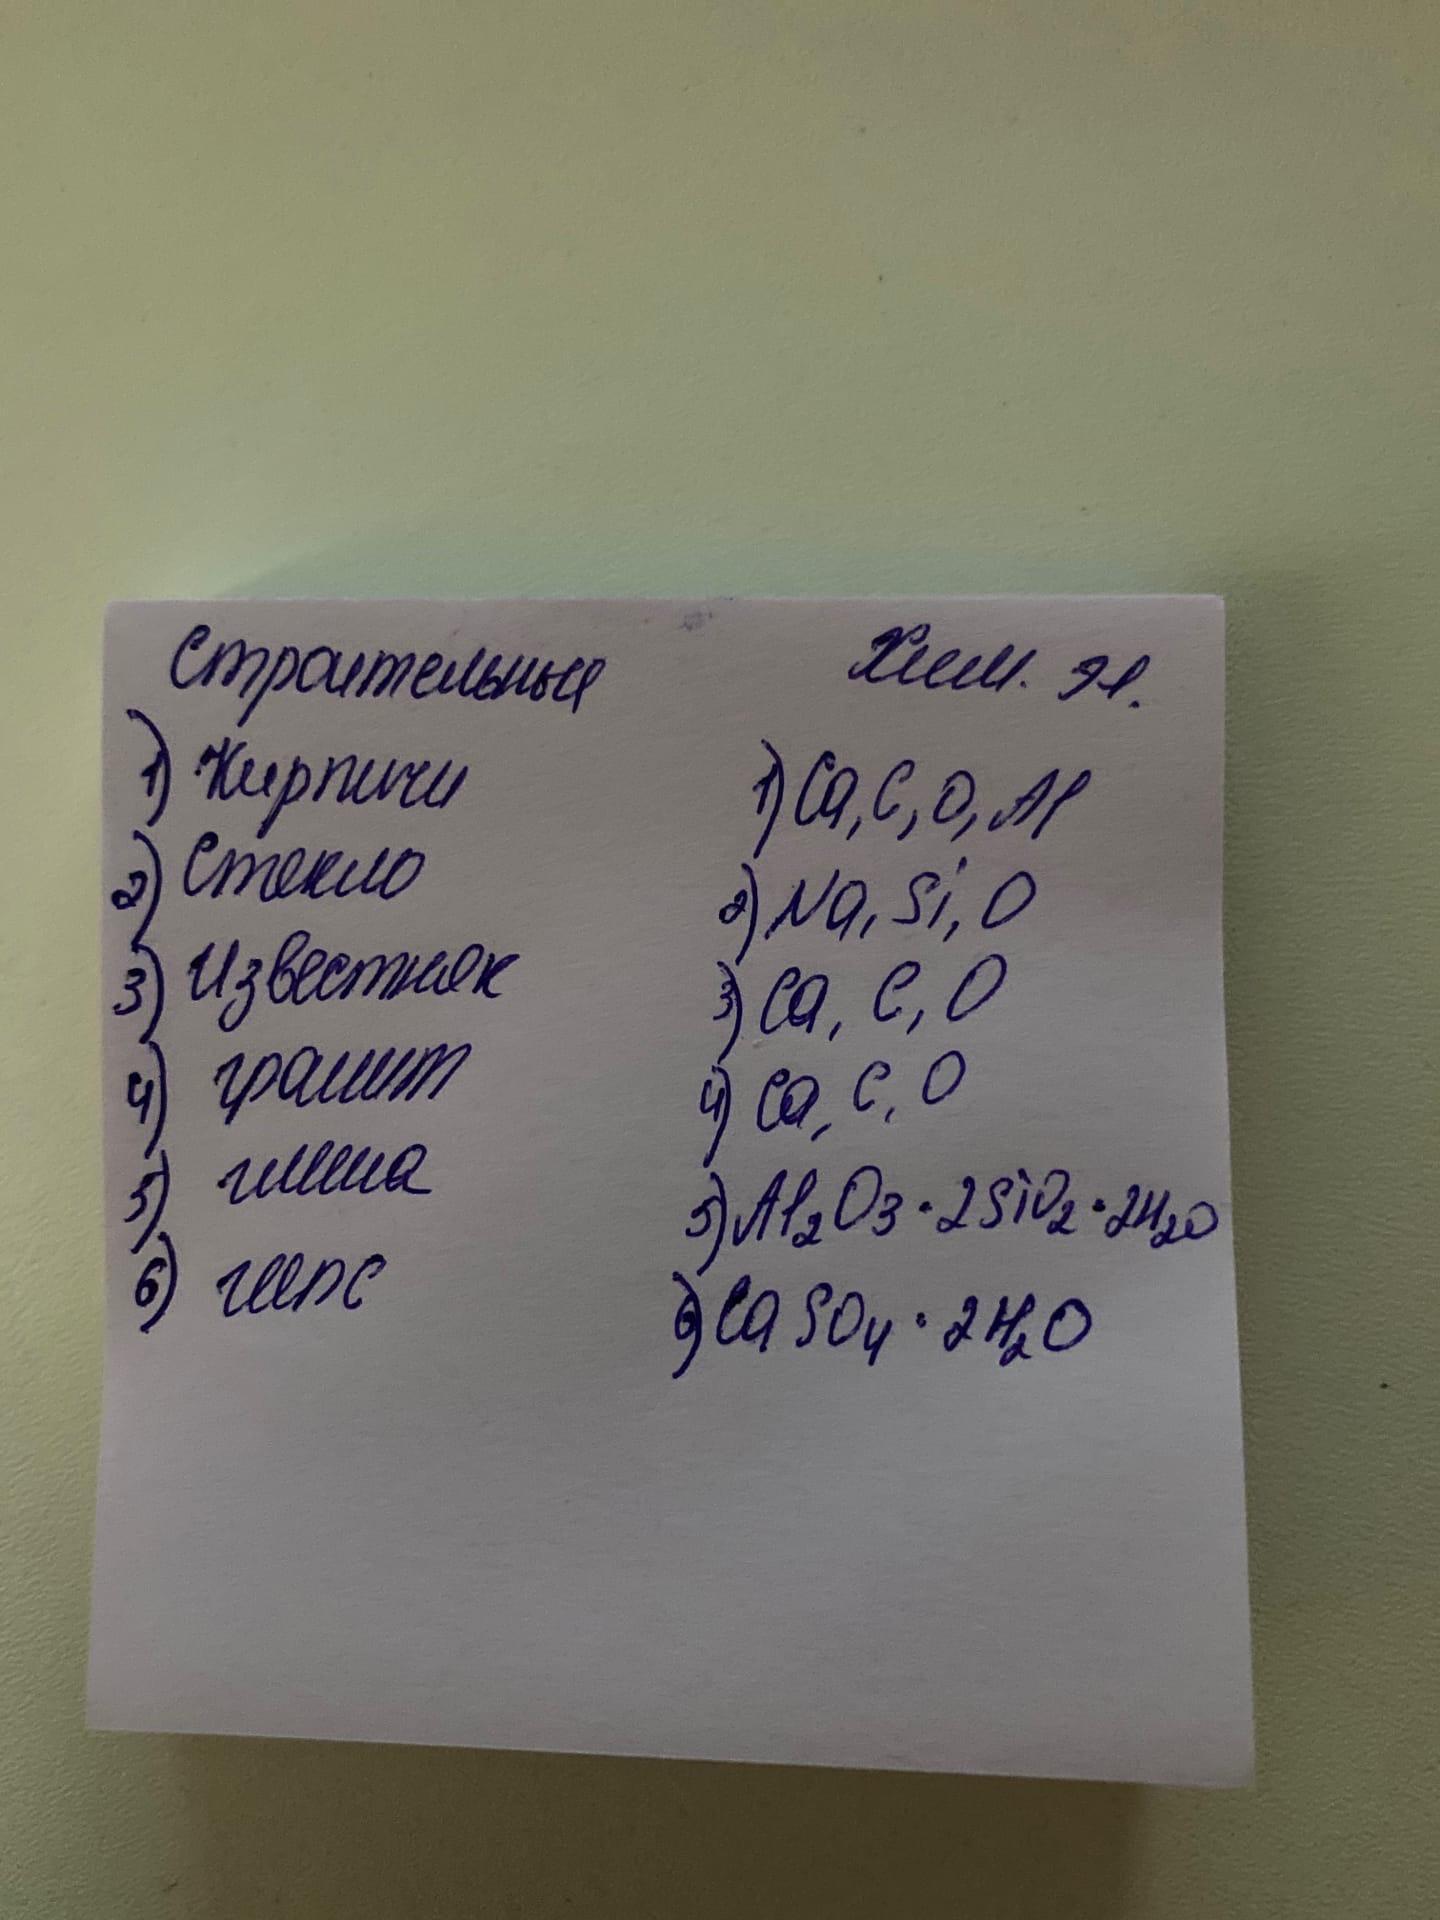 Строительные Хим. эл.
1) Кирпичи 1) Ca, C, O, Al
2) Стекло 2) Na, Si, O
3) Известняк 3) Ca, C, O
4) гранит 4) Ca, C, O
5) глина 5) Al₂O₃ · 2SiO₂ · 2H₂O
6) гипс 6) CaSO₄ · 2H₂O